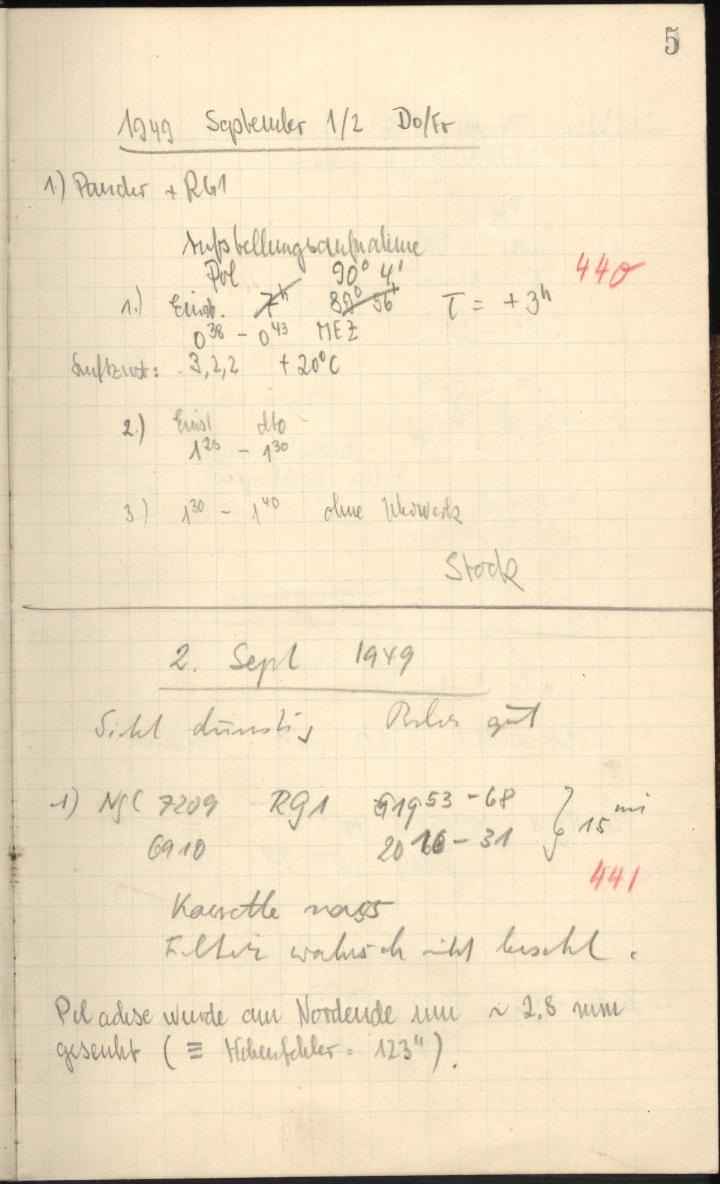 5
1949 September 1/2 Do/Fr
1.) Pander + RG1
Aufstellungsaufnahme
Pol 90° 4'
440
1.) Einst. 7ʰ 89° 56' τ = + 3ʰ
0³⁸ - 0⁴³ MEZ
Luftzust: 3,2,2 +20°C
2.) Einst dto
1²⁵ - 1³⁰
3.) 1³⁰ - 1⁴⁰ ohne Uhrwerk
Stock
2. Sept 1949
Sicht dunstig Ruhe gut
1) NGC 7209 RG1 19 53 - 68
6910 20 16 - 31 } 15 min
441
Kassette nass
Filter wahrsch nicht beschl.
Polachse wurde am Nordende um ~ 2,8 mm
gesenkt (≡ Höhenfehler = 123").